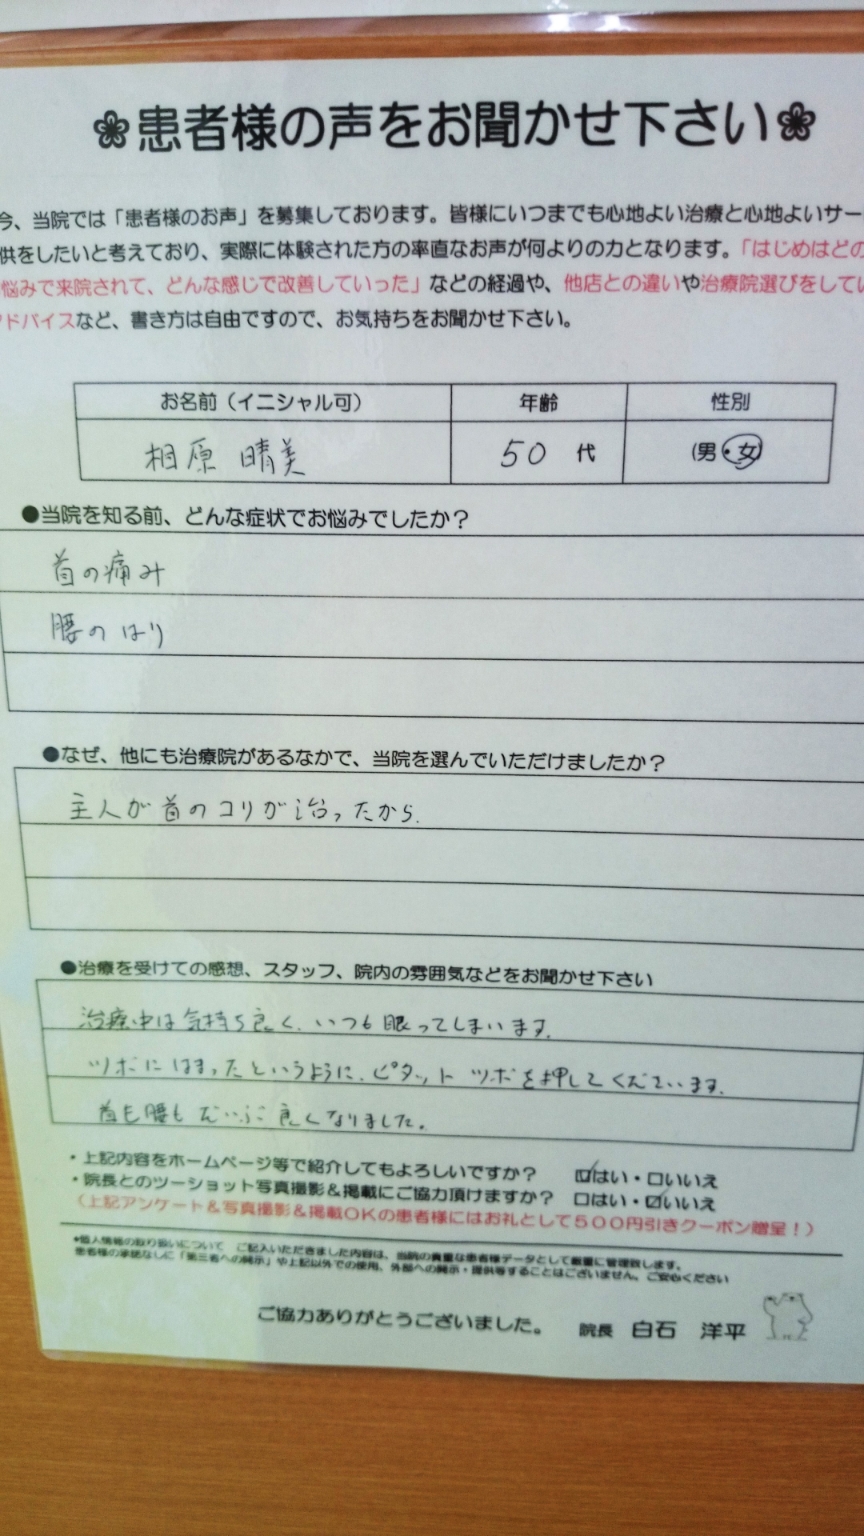 ❀患者様の声をお聞かせ下さい❀
今、当院では「患者様のお声」を募集しております。皆様にいつまでも心地よい治療と心地よいサー
供をしたいと考えており、実際に体験された方の率直なお声が何よりの力となります。「はじめはどの
悩みで来院されて、どんな感じで改善していった」などの経過や、他店との違いや治療院選びをしてい
ドバイスなど、書き方は自由ですので、お気持ちをお聞かせ下さい。
お名前（イニシャル可） 年齢 性別
相原 晴美 50 代 (男・女)
●当院を知る前、どんな症状でお悩みでしたか？
首の痛み
腰のはり
●なぜ、他にも治療院があるなかで、当院を選んでいただけましたか？
主人が首のコリが治ったから.
●治療を受けての感想、スタッフ、院内の雰囲気などをお聞かせ下さい
治療中は気持ち良く、いつも眠ってしまいます.
ツボにはまったというように、ピタットツボを押してくだいます.
首も腰もだいぶ良くなりました。
・上記内容をホームページ等で紹介してもよろしいですか？ ☑はい・☐いいえ
・院長とのツーショット写真撮影＆掲載にご協力頂けますか？ ☐はい・☑いいえ
（上記アンケート＆写真撮影＆掲載OKの患者様にはお礼として５００円引きクーポン贈呈！）
*個人情報の取り扱いについて ご記入いただきました内容は、当院の貴重な患者様データとして厳重に管理致します。
患者様の承諾なしに「第三者への開示」や上記以外での使用、外部への開示・提供等することはございません。ご安心ください
ご協力ありがとうございました。 院長 白石 洋平